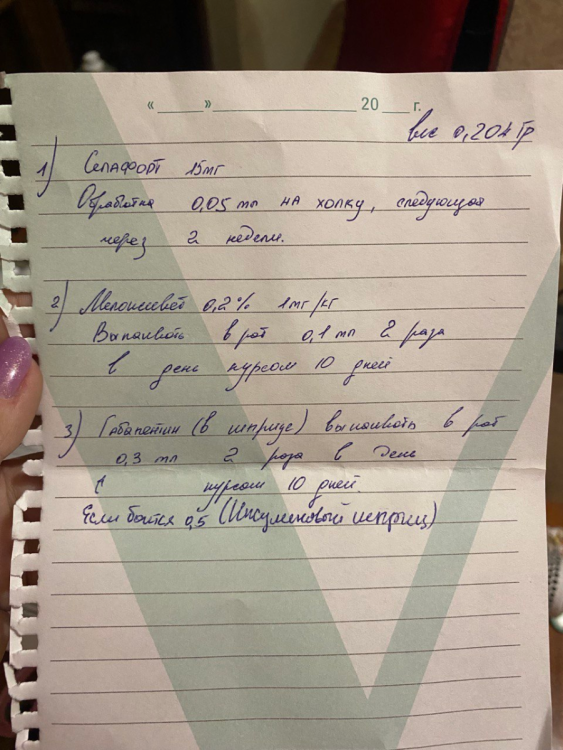 « » 20 г.
вес 0,204 гр
1) Селафорт 15мг
Обработка 0,05 мл на холку, следующая
через 2 недели.
2) Мелоксивет 0,2% 1мг/кг
Выпаивать в рот 0,1 мл 2 раза
в день курсом 10 дней
3) Габапентин (в шприце) выпаивать в рот
0,3 мл 2 раза в день
курсом 10 дней.
Если боится 0,5 (Инсулиновый шприц)